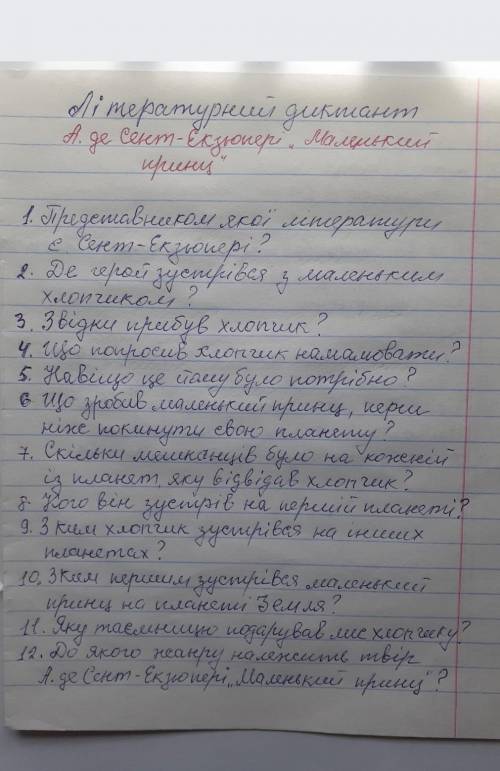 Літературний диктант
А. де Сент-Екзюпері „Маленький
принц"
1. Представником якої літератури
є Сент-Екзюпері?
2. Де герой зустрівся з маленьким
хлопчиком?
3. Звідки прибув хлопчик?
4. Що попросив хлопчик намалювати?
5. Навіщо це йому було потрібно?
6 Що зробив маленький принц, перш
ніж покинути свою планету?
7. Скільки мешканців було на кожній
із планет, яку відвідав хлопчик?
8. Кого він зустрів на першій планеті?
9. З ким хлопчик зустрівся на інших
планетах?
10. З ким першим зустрівся маленький
принц на планеті Земля?
11. Яку таємницю подарував лис хлопчику?
12. До якого жанру належить твір
А. де Сент-Екзюпері „Маленький принц"?